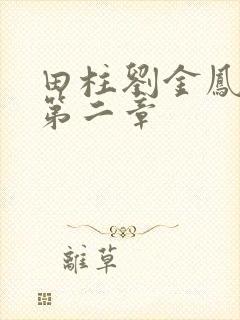 田柱劉金鳳
第二章
離草